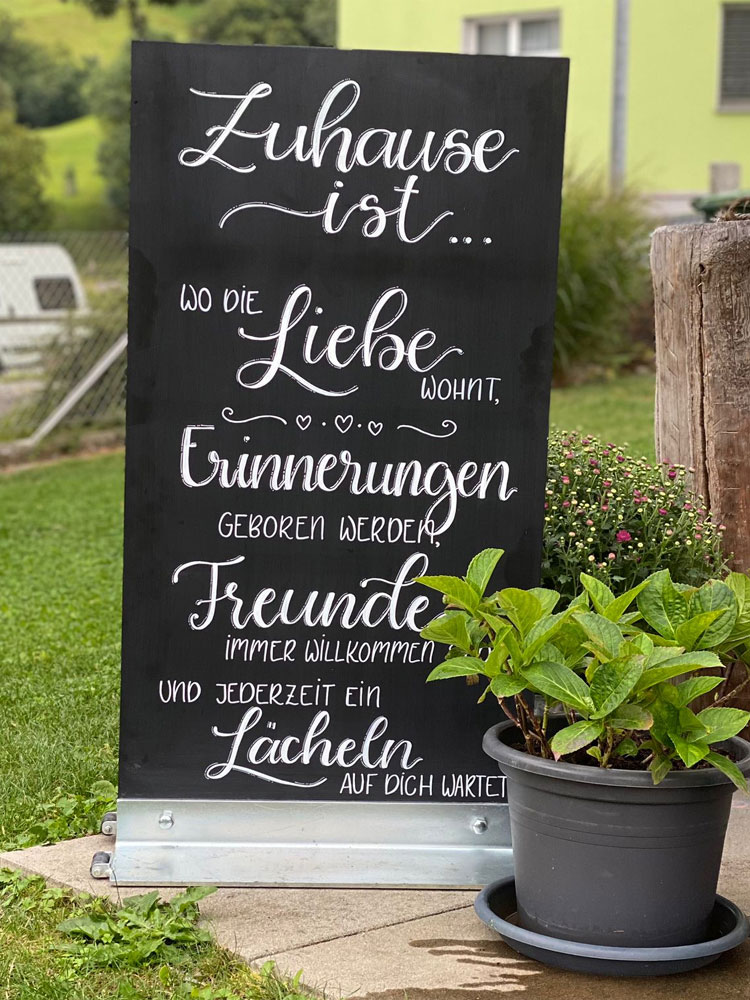 Zuhause
ist...
WO DIE
Liebe
WOHNT,
Erinnerungen
GEBOREN WERDEN,
Freunde
IMMER WILLKOMMEN
UND JEDERZEIT EIN
Lächeln
AUF DICH WARTET